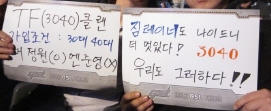 TF(3040)-클랜
가입조건 : 30대 40대
정원(O) 엔준영(X)
짐레이너도 나이드니
더 멋있다! 3040
우리도 그러하다!!